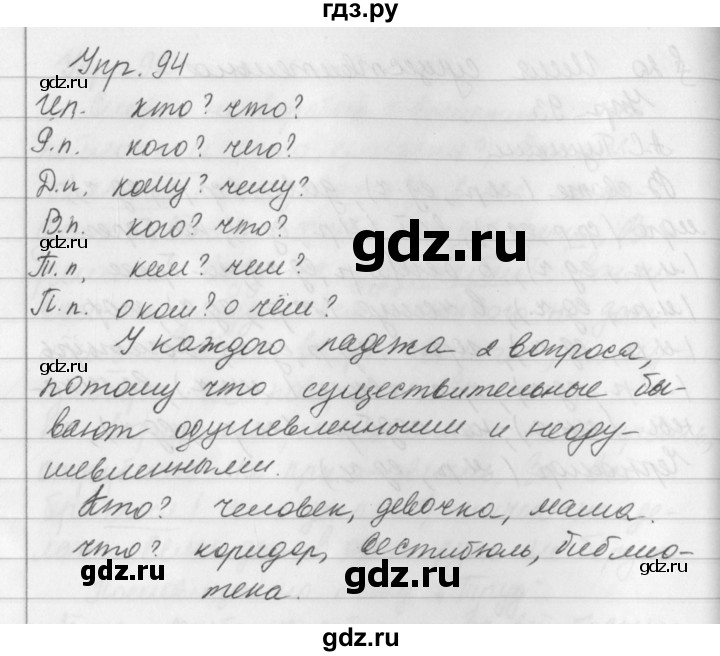 гдз.ру
Упр. 94
gdz.ru
И.п. кто? что?
Р.п. кого? чего?
Д.п. кому? чему?
gdz.ru
В.п. кого? что?
gdz.ru
gdz.ru
Т.п. кем? чем?
П.п. о ком? о чём?
У каждого падежа 2 вопроса,
gdz.ru
gdz.ru
потому что существительные бы-
вают одушевленными и неоду-
шевленными.
Кто? человек, девочка, мама.
что? коридор, вестибюль, библио-
gdz.ru
gdz.ru
тека.
gdz.ru